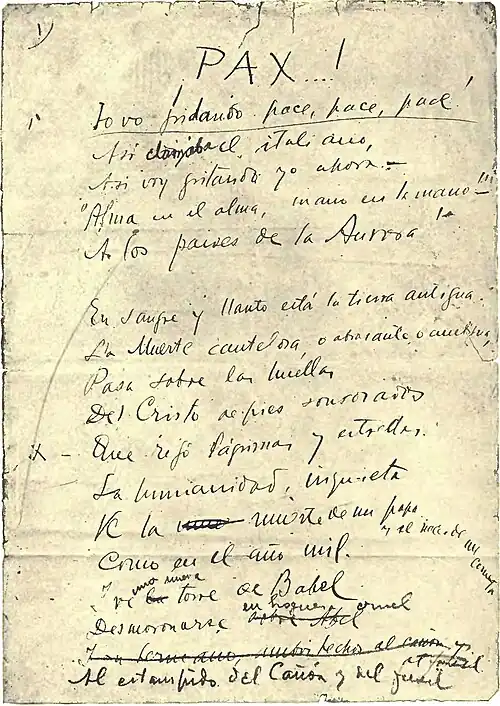 1)
PAX....!
Io vo gridando pace, pace, pace!
Así clamaba el italiano,
Así voy gritando yo ahora.–
"Alma en el alma, mano en la mano–"
A los países de la Aurora!
En sangre y llanto está la tierra antigua.
La Muerte cautelosa, o abrasante o ambigua,
Pasa sobre las huellas
Del Cristo de pies sonrosados
X – Que regó lágrimas y estrellas.
La humanidad, inquieta
Ve la muerte de un papa y el nacer de un cometa
Como en el año mil.
Y ve una nueva torre de Babel
Desmoronarse en hoguera cruel
Al estampido del Cañón y del fusil